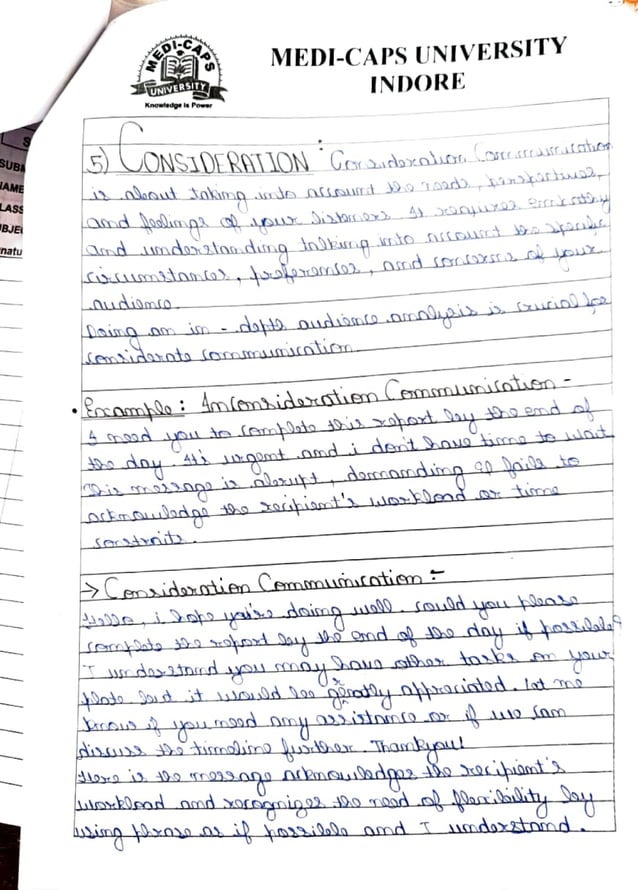 MEDI-CAPS
UNIVERSITY
Knowledge is Power
MEDI-CAPS UNIVERSITY
INDORE
5) CONSIDERATION : Consideration Communication
is about taking into account the needs, perspectives,
and feelings of your listeners. It requires empathy
and understanding talking into account the specific
circumstances, preferences, and concerns of your
audience.
Doing an in - depth audience analysis is crucial for
considerate communication
• Example : Inconsideration Communication -
I need you to complete this report by the end of
the day. It's urgent and i don't have time to wait
This message is abrupt, demanding & fails to
acknowledge the recipient's workload or time
constraits.
→ Consideration Communication :-
Hello, i hope you're doing well. could you please
complete the report by the end of the day if possible?
I understand you may have other tasks on your
plate but it would be greatly appreciated. Let me
know if you need any assistance or if we can
discuss the timeline further. Thankyou!
Here is the message acknowledges the recipient's
workload and recognizes the need of flexibility by
using phrase as if possible and I understand.
SUB
NAME
LASS
BJE
natu